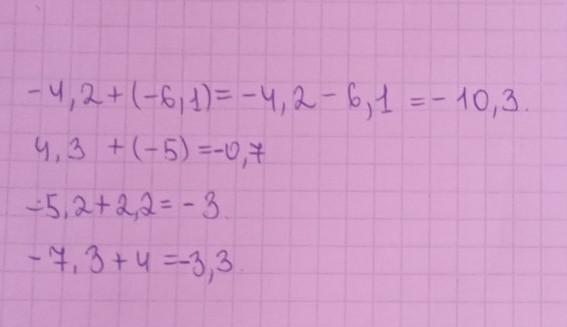 -4,2+(-6,1)=-4,2-6,1=-10,3.
4,3 +(-5)=-0,7
-5,2+2,2=-3.
-7,3+4=-3,3.